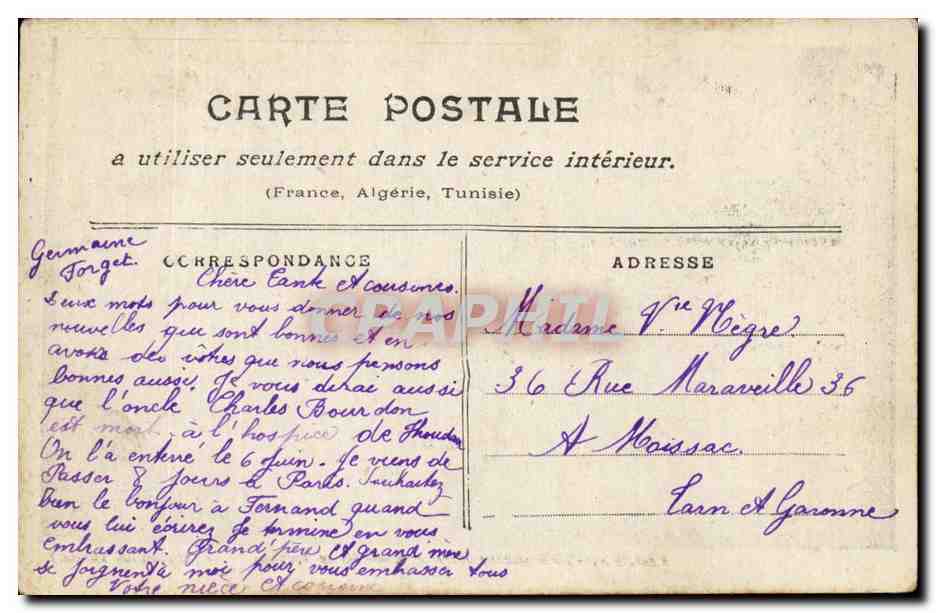 CARTE POSTALE
a utiliser seulement dans le service intérieur.
(France, Algérie, Tunisie)
Germaine
Forget.
CORRESPONDANCE
Chère Tante et cousines.
Deux mots pour vous donner de nos
nouvelles qui sont bonnes et en
avoir des vôtres que nous pensons
bonnes aussi. Je vous dirai aussi
que l'oncle Charles Bourdon
est mort à l'hospice de Houdan
On l'a enterré le 6 juin. Je viens de
Passer 8 jours a Paris. Souhaitez
bien le bonjour à Fernand quand
vous lui écrirez Je termine en vous
embrassant. Grand'père et grand mère
se joignent à moi pour vous embrasser tous
Votre nièce et cousine
ADRESSE
Madame Vve Nègre
36 Rue Maraveille 36
A Moissac.
Tarn et Garonne
CPAPHIL